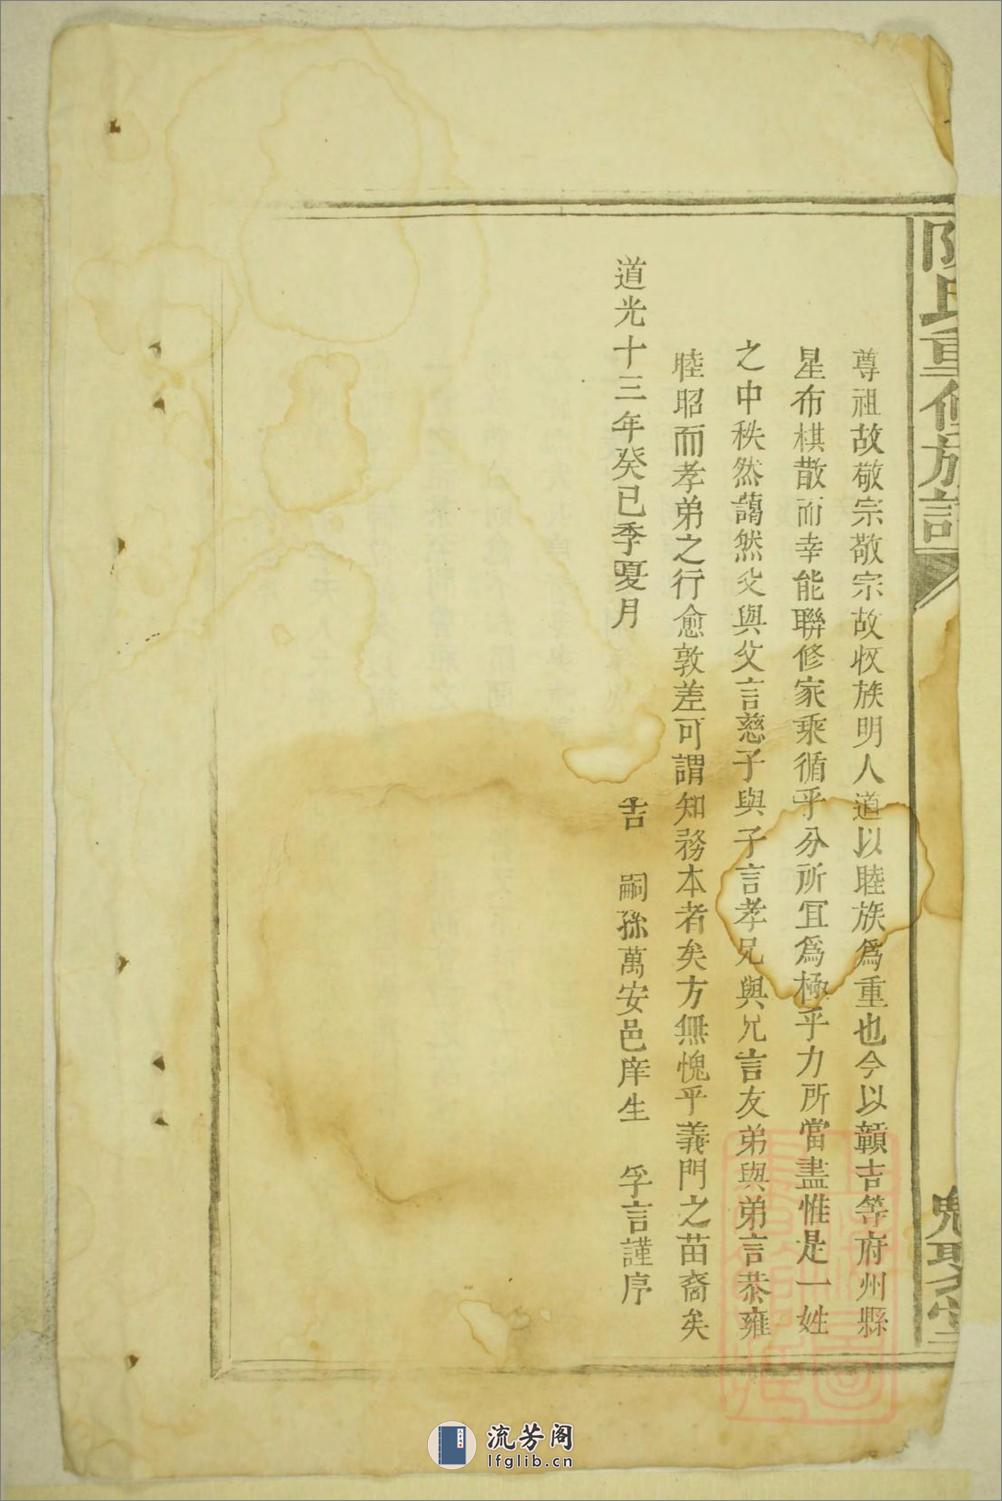 陳氏重修族譜
聚堂
尊祖故敬宗敬宗故收族明人道以睦族為重也今以贑吉等府州縣
星布棋散而幸能聯修家乘循乎分所宜為極乎力所當盡惟是一姓
之中秩然藹然父與父言慈子與子言孝兄與兄言友弟與弟言恭雍
睦昭而孝弟之行愈敦差可謂知務本者矣方無愧乎義門之苗裔矣
道光十三年癸巳季夏月 吉 嗣孫萬安邑庠生 孚言謹序
流芳阁
lfglib.cn